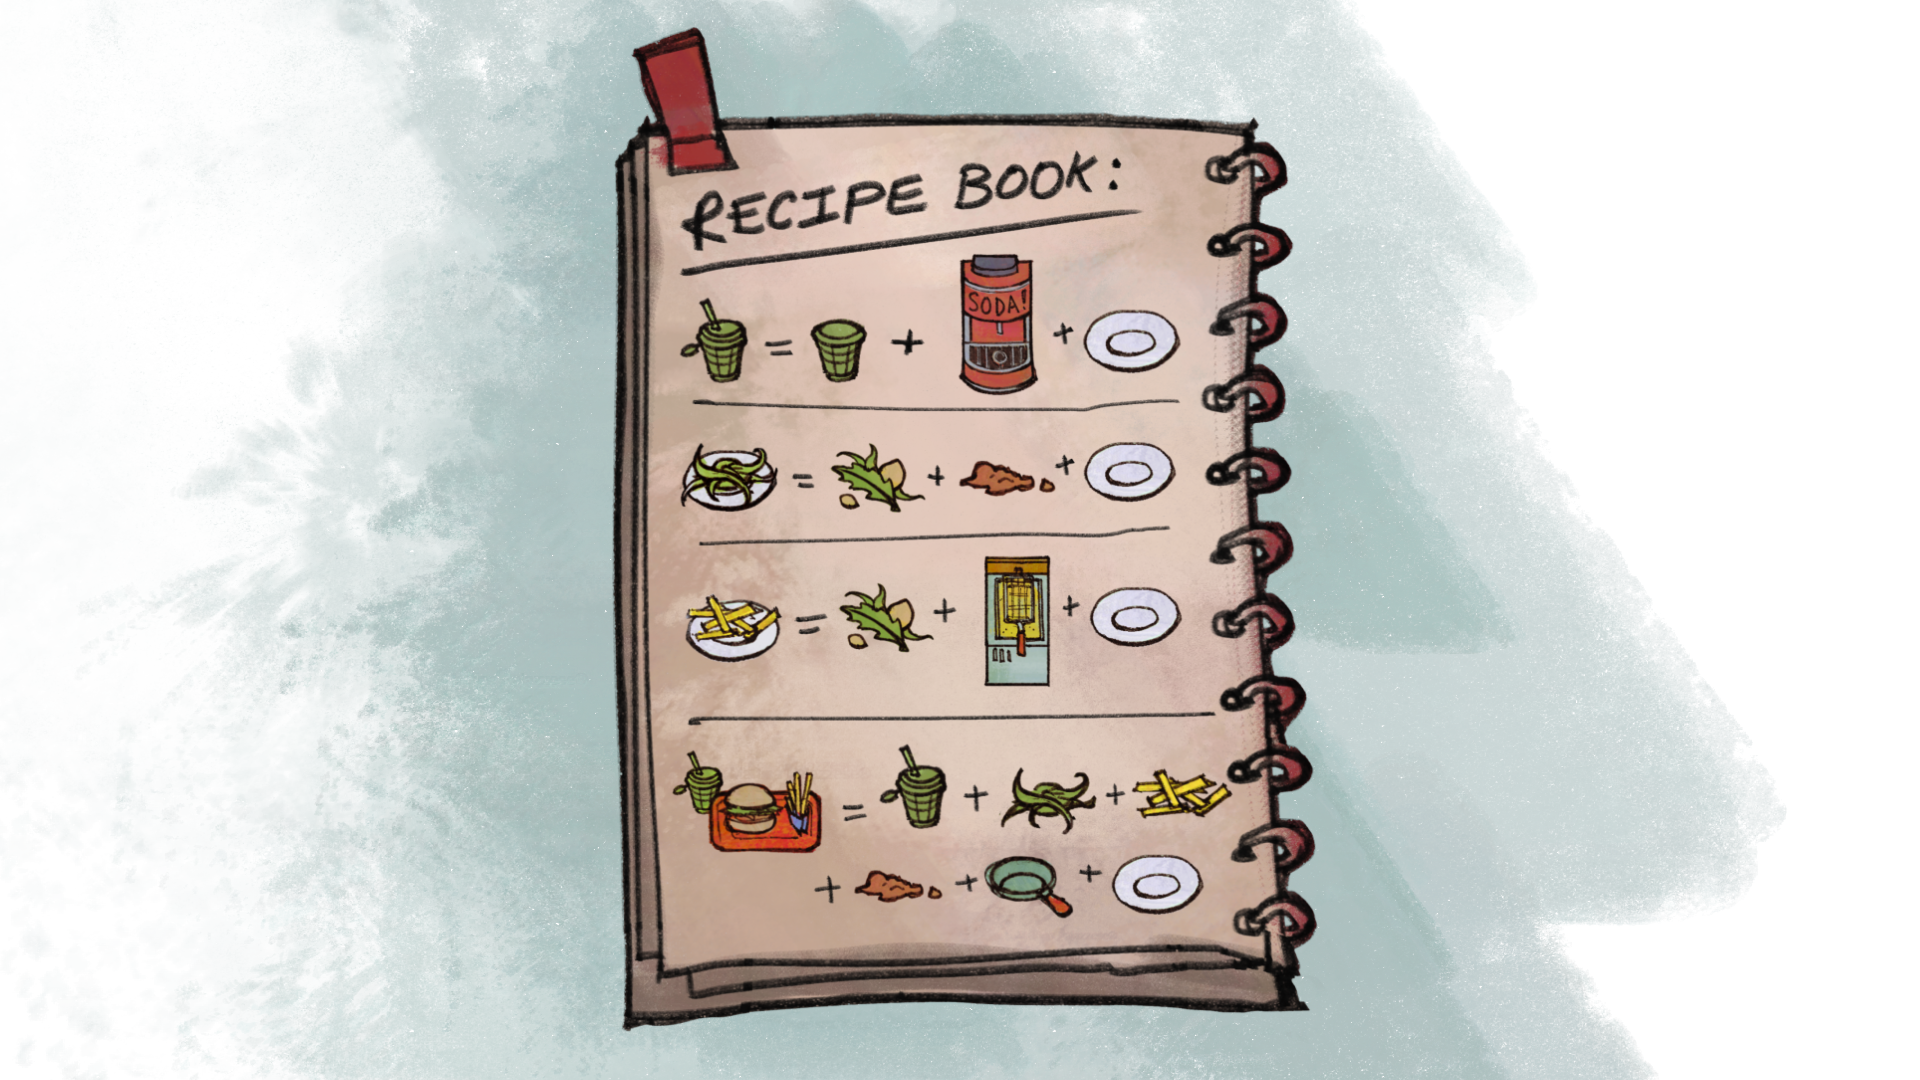 RECIPE BOOK:
SODA!
= + +
= + +
= + +
= + +
+ + +